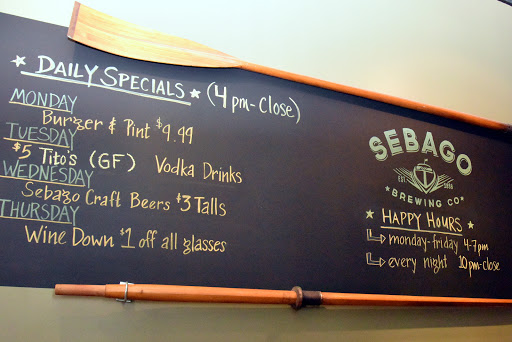 DAILY SPECIALS (4pm-Close)
MONDAY
Burger & Pint $9.99
TUESDAY
$5 Tito's (GF) Vodka Drinks
WEDNESDAY
Sebago Craft Beers $3 Talls
THURSDAY
Wine Down $1 off all glasses
SEBAGO
EST
BREWING CO
HAPPY HOURS
monday-friday 4-7pm
every night 10pm-close